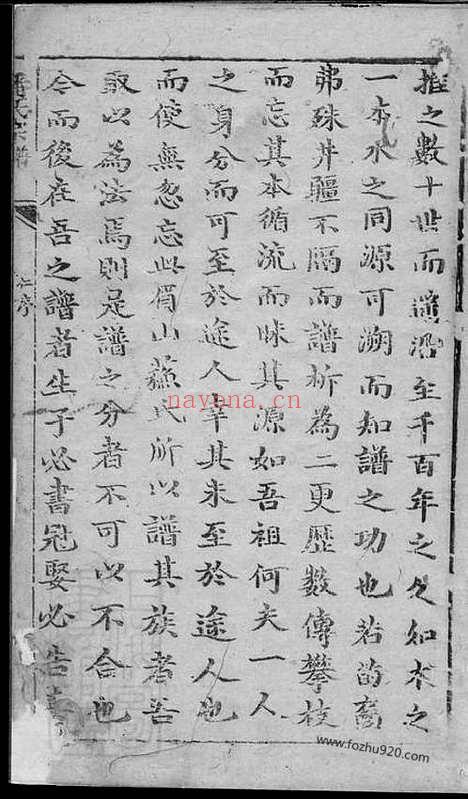 推之數十世而遡沿至千百年之久如木之
一本水之同源可溯而知譜之功也若的裔
弗殊井疆不隔而譜析為二更歷數傳攀枝
而忘其本循流而昧其源如吾祖何夫一人
之身分而可至於途人幸其未至於途人也
而使無忽忘此眉山蘇氏所以譜其族者吾
取以為法焉則是譜之分者不可以不合也
今而後在吾之譜者生子必書冠娶必告
氏宗譜
序
nayona.cn
www.fozhu920.com